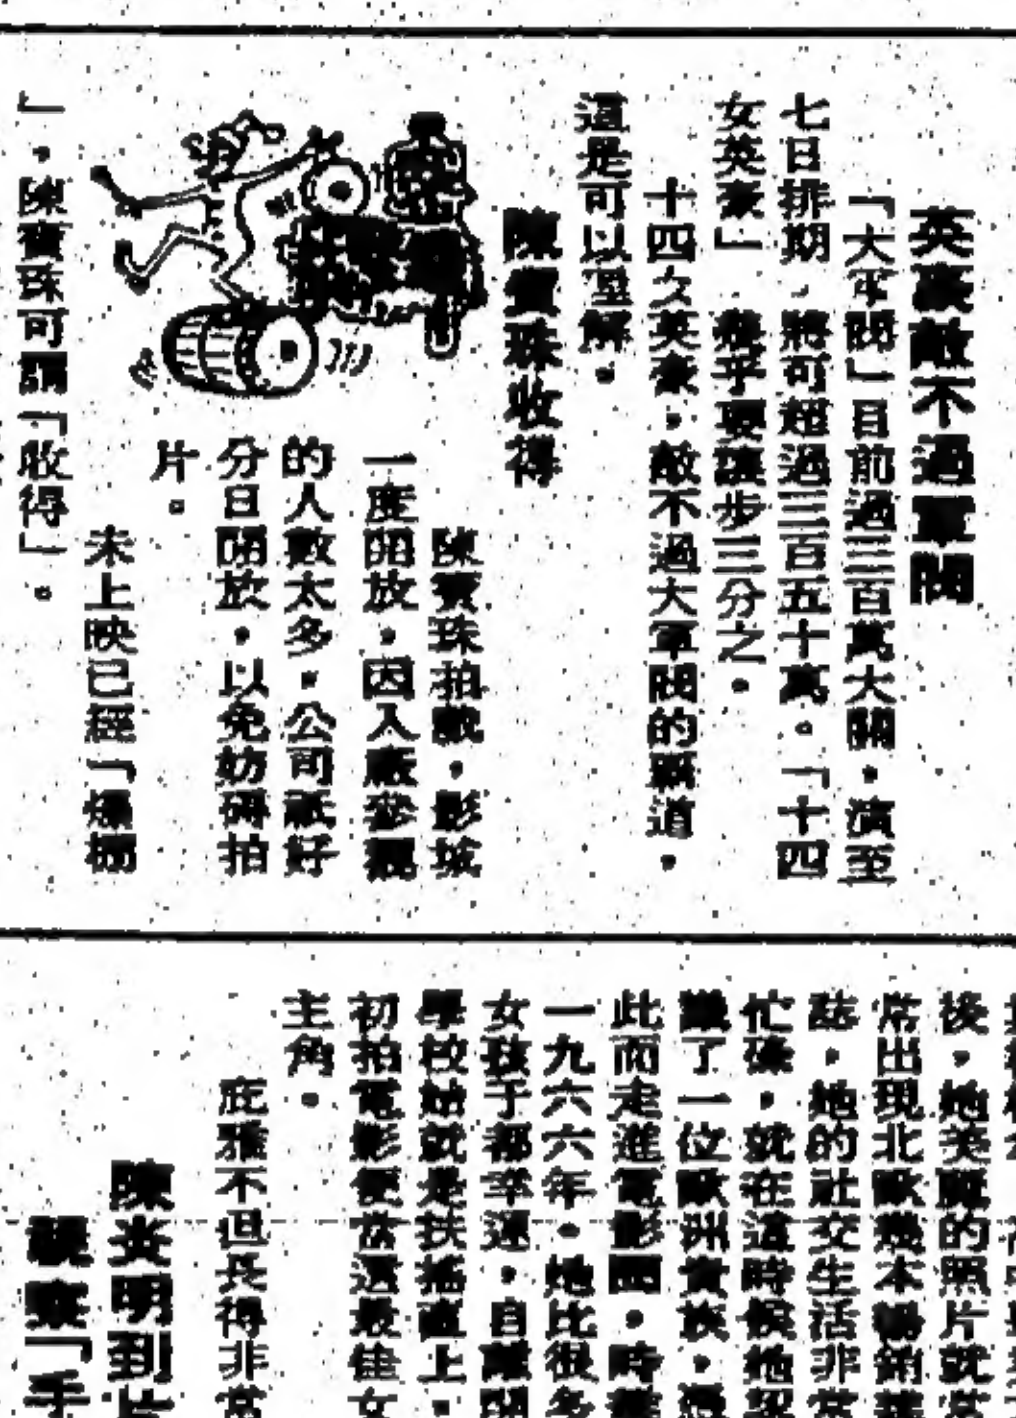 英豪敵不過軍閥
「大軍閥」目前過三百萬大關,演至
七日排期,將可超過三百五十萬。「十四
女英豪」,幾乎要讓步三分之。
十四女英豪,敵不過大軍閥的霸道,
這是可以理解。
陳寶珠收得
陳寶珠拍戲,影城
一度開放,因入廠參觀
的人數太多,公司祇好
分日開放,以免妨礙拍
片。
未上映已經「爆棚
」,陳寶珠可謂「收得」。
後,她美麗的照片就
常出現北歐幾本暢銷
誌,她的社交生活非常
忙碌,就在這時候她認
識了一位歐洲貴族,
此而走進電影圈,時
一九六六年。她比很多
女孩子都幸運,自離開
學校始就是扶搖直上,
初拍電影便當選最佳女
主角。
庇雅不但長得非常
陳光明到片
視察「手